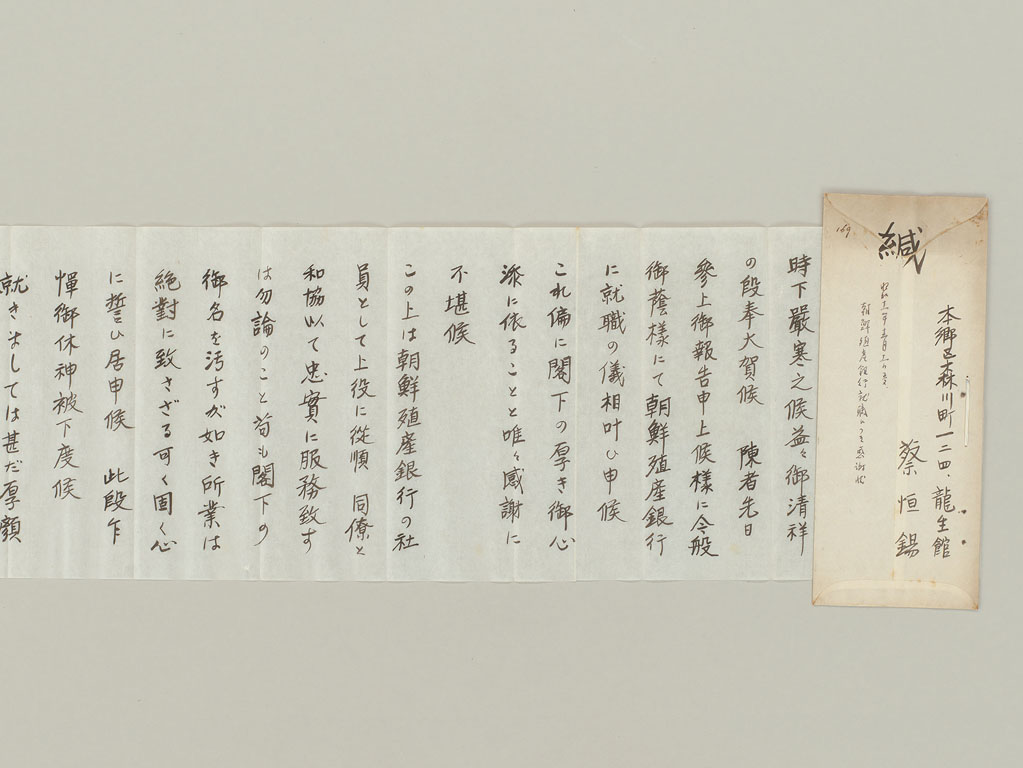 緘
本郷区森川町一二四、龍生館
蔡恒錫
169
朝鮮殖産銀行就職につき感謝状
時下嚴寒之候益々御清祥
の段奉大賀候 陳者先日
參上御報告申上候様に今般
御蔭様にて朝鮮殖産銀行
に就職の儀相叶ひ申候
これ偏に閣下の厚き御心
添に依ることと唯々感謝に
不堪候
この上は朝鮮殖産銀行の社
員として上役に從順 同僚と
和協以て忠實に服務致す
は勿論のこと苟も閣下の
御名を汚すが如き所業は
絶對に致さざる可く固く心
に誓ひ居申候 此段乍
憚御休神被下度候
就きましては甚だ厚顔